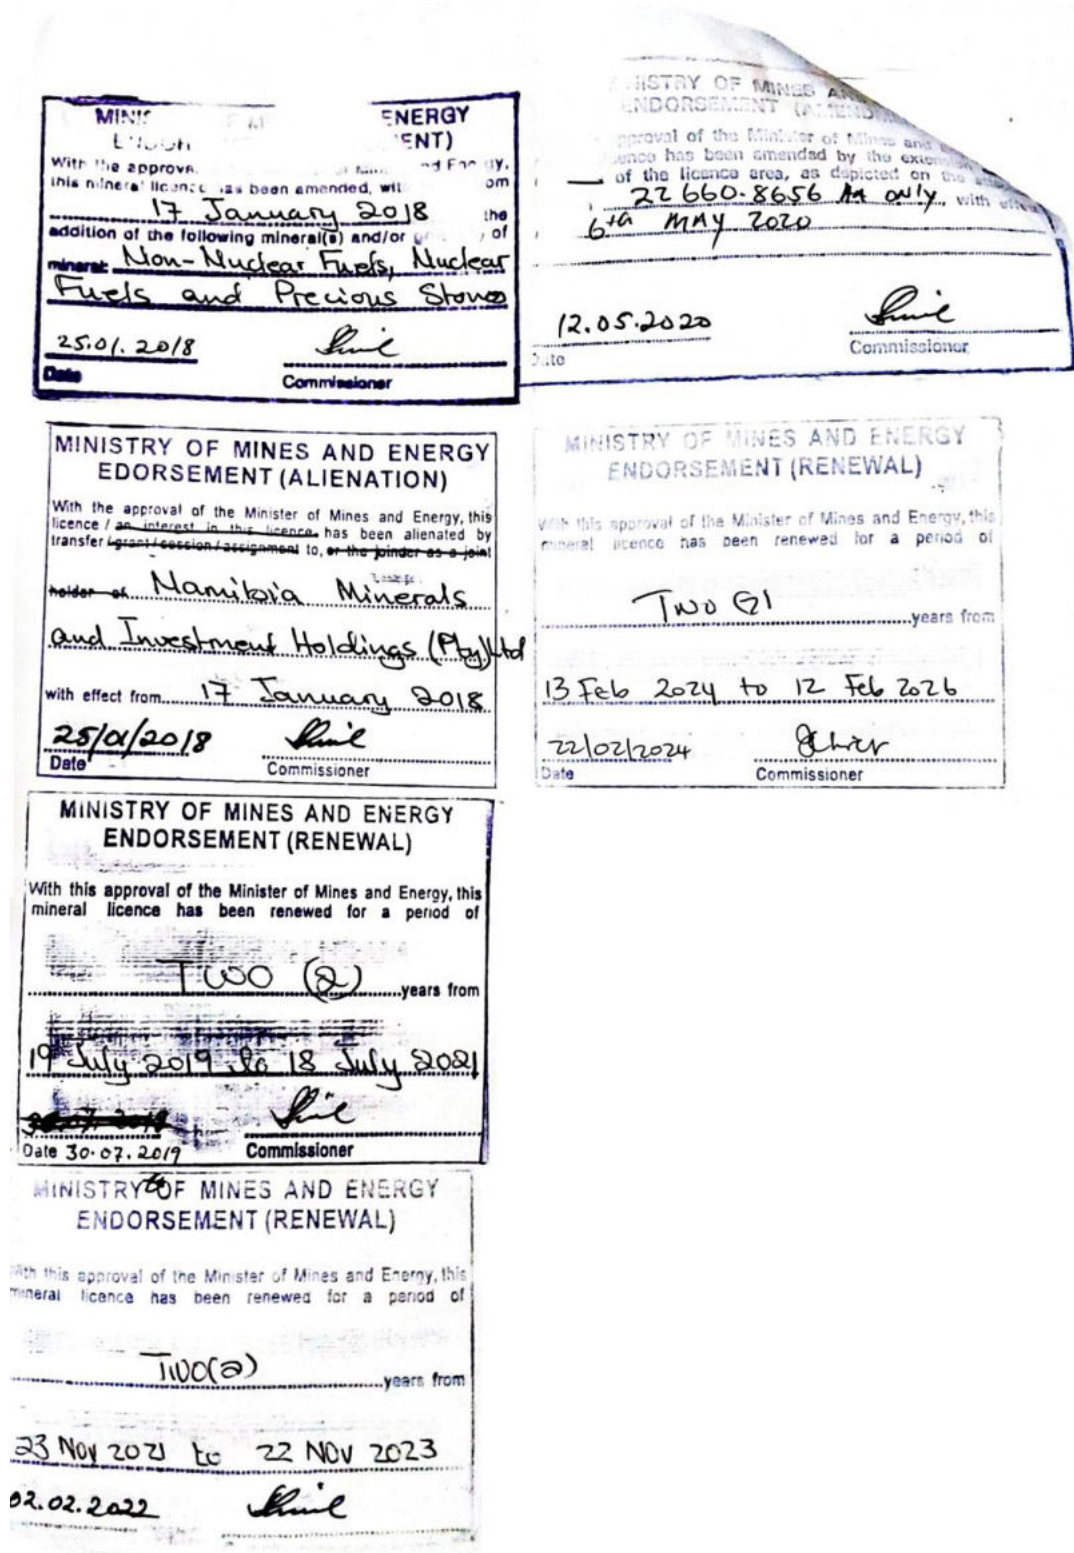 MINIS ENERGY
ENT)
With the approva and Energy,
this mineral licence has been amended, wit om
17 January 2018 the
addition of the following mineral(s) and/or of
mineral: Non-Nuclear Fuels, Nuclear
Fuels and Precious Stones
25.01.2018
Date Commissioner
NISTRY OF MINES AN
ENDORSEMENT (AMEND
pproval of the Minister of Mines and
ence has been amended by the exten
of the licence area, as depicted on the
22 660.8656 Ha only, with effe
6th MAY 2020
12.05.2020
Date Commissioner
MINISTRY OF MINES AND ENERGY
EDORSEMENT (ALIENATION)
With the approval of the Minister of Mines and Energy, this
licence / an interest in this licence, has been alienated by
transfer / grant / cession / assignment to, or the joinder as a joint
holder of Namibia Minerals
and Investment Holdings (Pty) Ltd
with effect from 17 January 2018
25/01/2018
Date Commissioner
MINISTRY OF MINES AND ENERGY
ENDORSEMENT (RENEWAL)
With this approval of the Minister of Mines and Energy, this
mineral licence has been renewed for a period of
Two years from
13 Feb 2024 to 12 Feb 2026
22/02/2024
Date Commissioner
MINISTRY OF MINES AND ENERGY
ENDORSEMENT (RENEWAL)
With this approval of the Minister of Mines and Energy, this
mineral licence has been renewed for a period of
TWO (2) years from
19 July 2019 to 18 July 2021
Date 30.07.2019 Commissioner
MINISTRY OF MINES AND ENERGY
ENDORSEMENT (RENEWAL)
With this approval of the Minister of Mines and Energy, this
mineral licence has been renewed for a period of
TWO (2) years from
23 Nov 2021 to 22 NOV 2023
02.02.2022